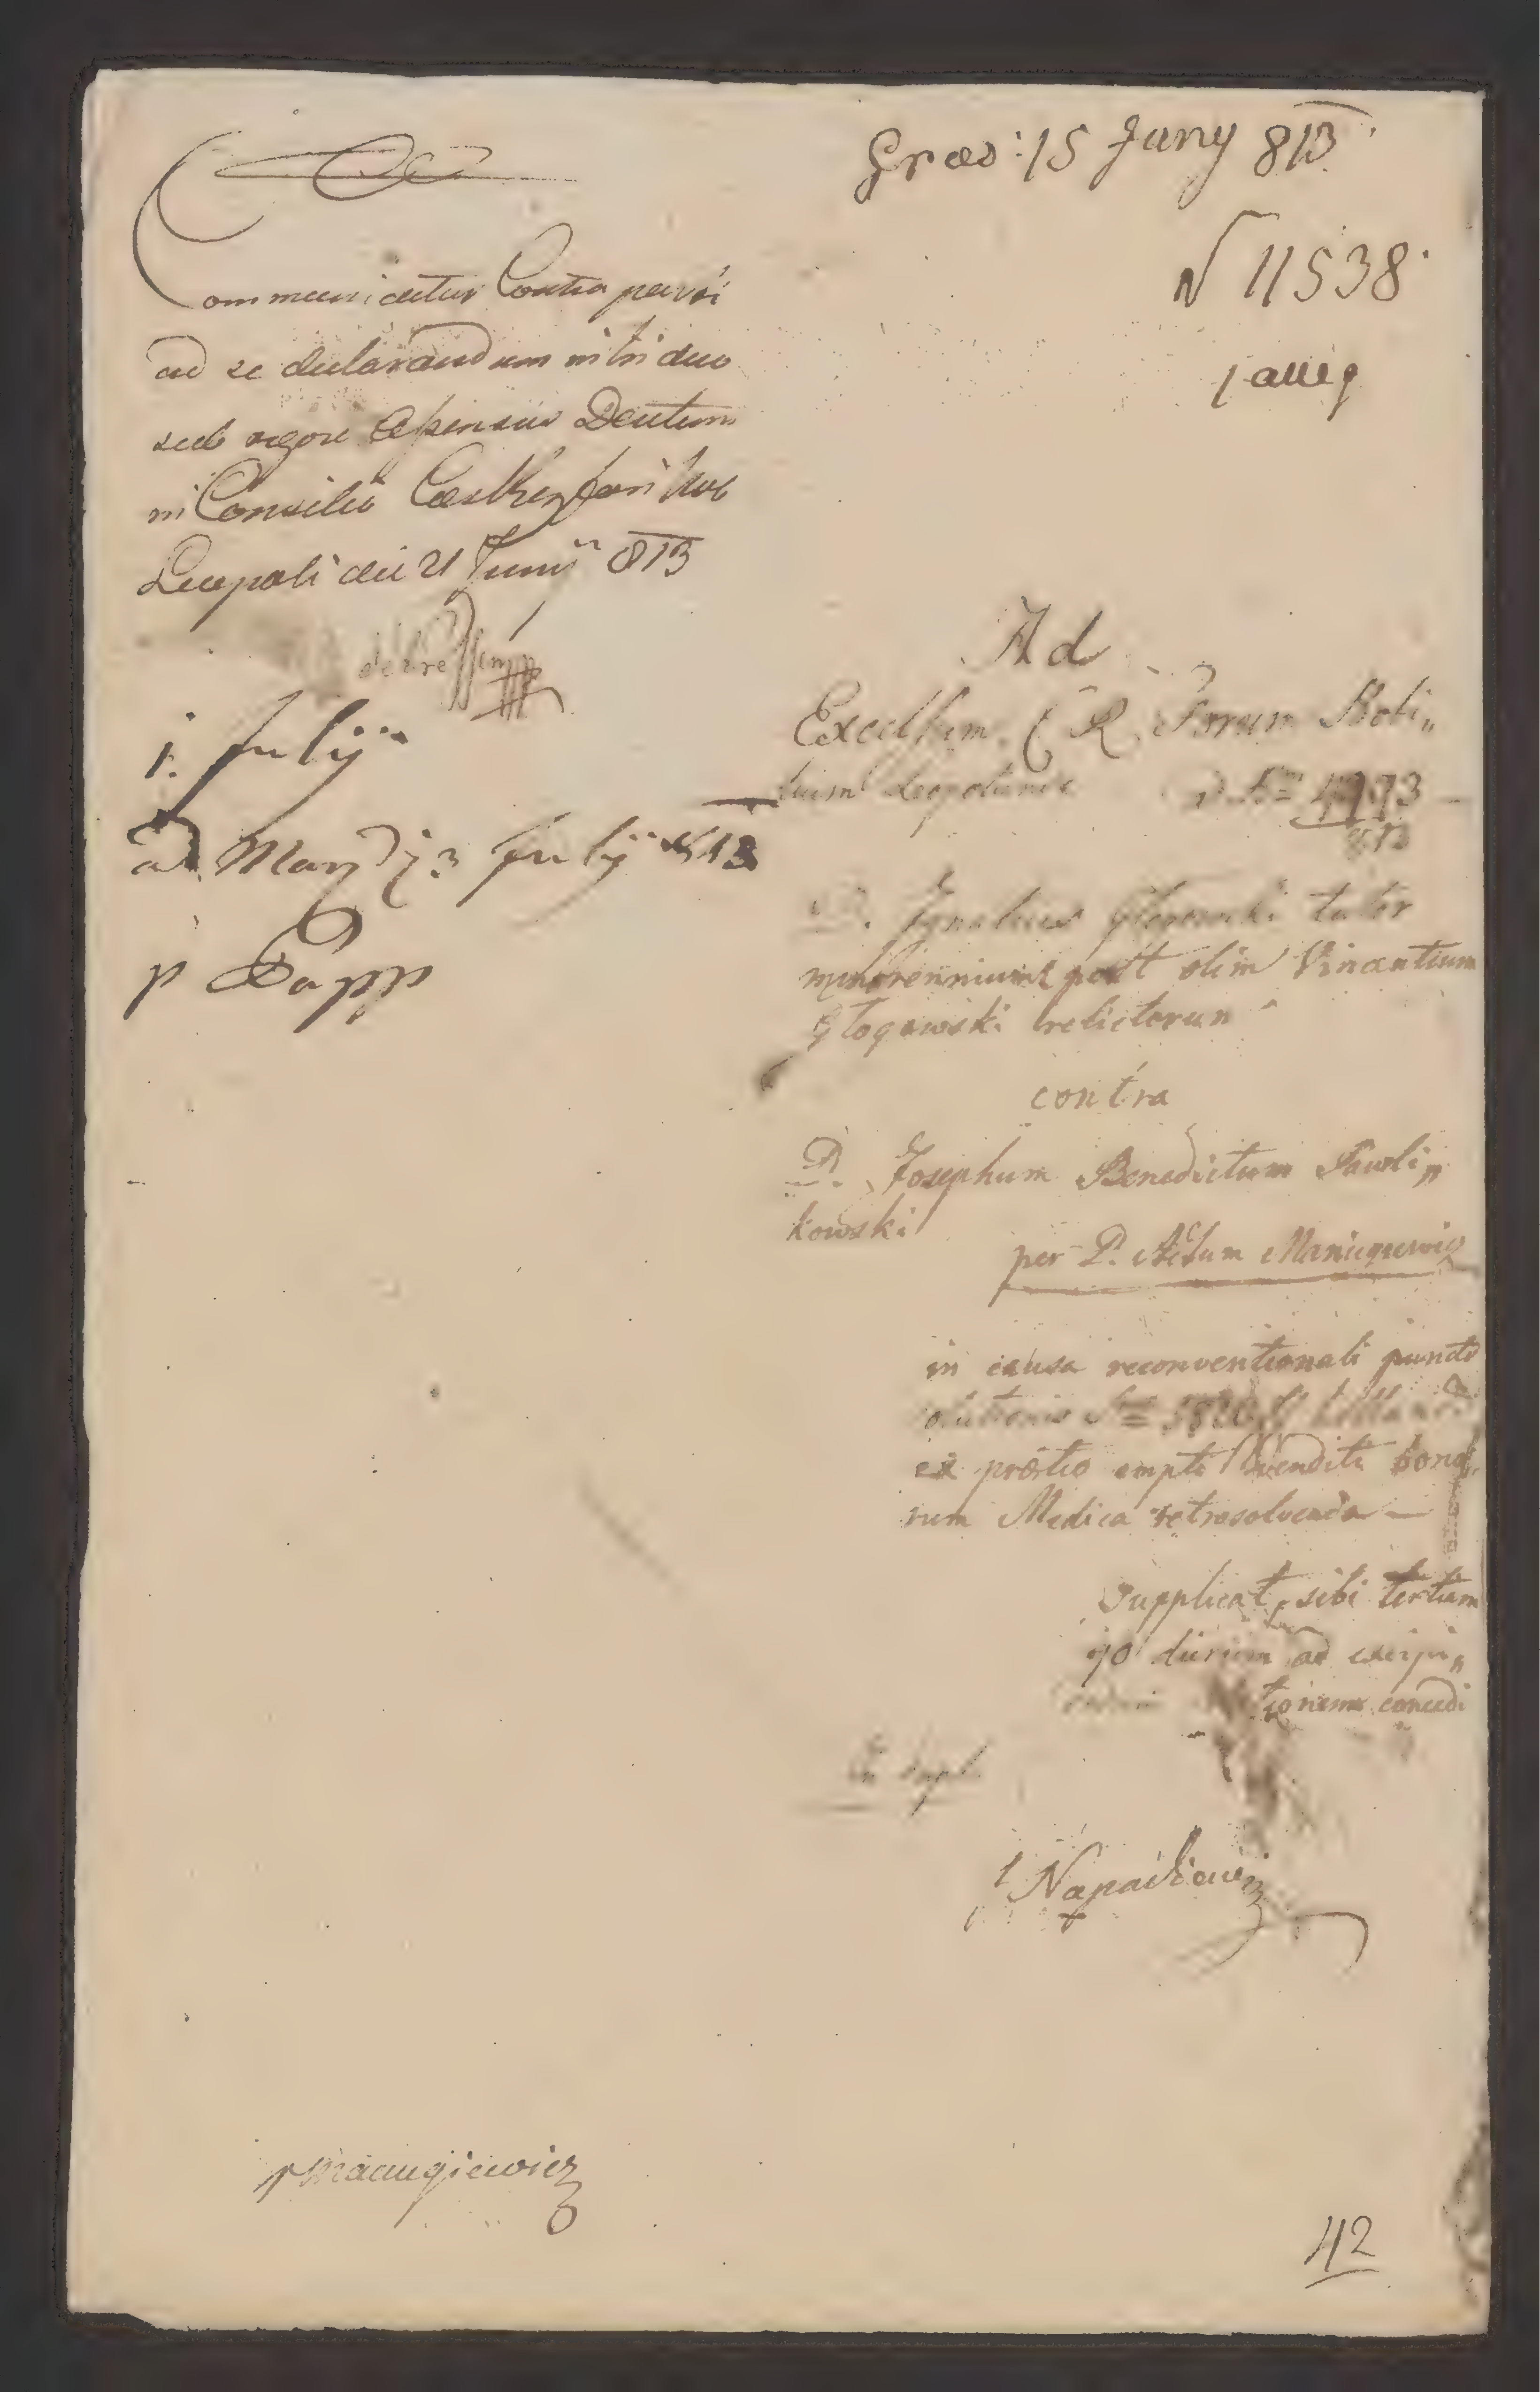 Communicatur Contra parti
ad se declarandum in triduo
sub rigore Datum
in Consilio Caes Reg fori Nob
Leopoli die 21 Junij 813
1. Julij
ad Mand 3 Julij 813
p Papp
Præs: 15 Juny 813
N 11538
1 alleg
Ad
Excelsum C. R. Forum Nobi„
lium Leopoliense ad Nrm 4993
813
D. Ignatius Głogowski tutor
minorennium post olim Vincentium
Głogowski relictorum
contra
D. Josephum Benedictum Pawli„
kowski
per D. Adum Maniugiewicz
in causa reconventionali puncto
solutionis
ex prætio empti venditi bono„
rum Medica retrosolvenda —
Supplicat, sibi tertium
90 dierum ad excipi„
tionem concedi
In dupl.
Napadiewicz
p Maniugiewicz
42